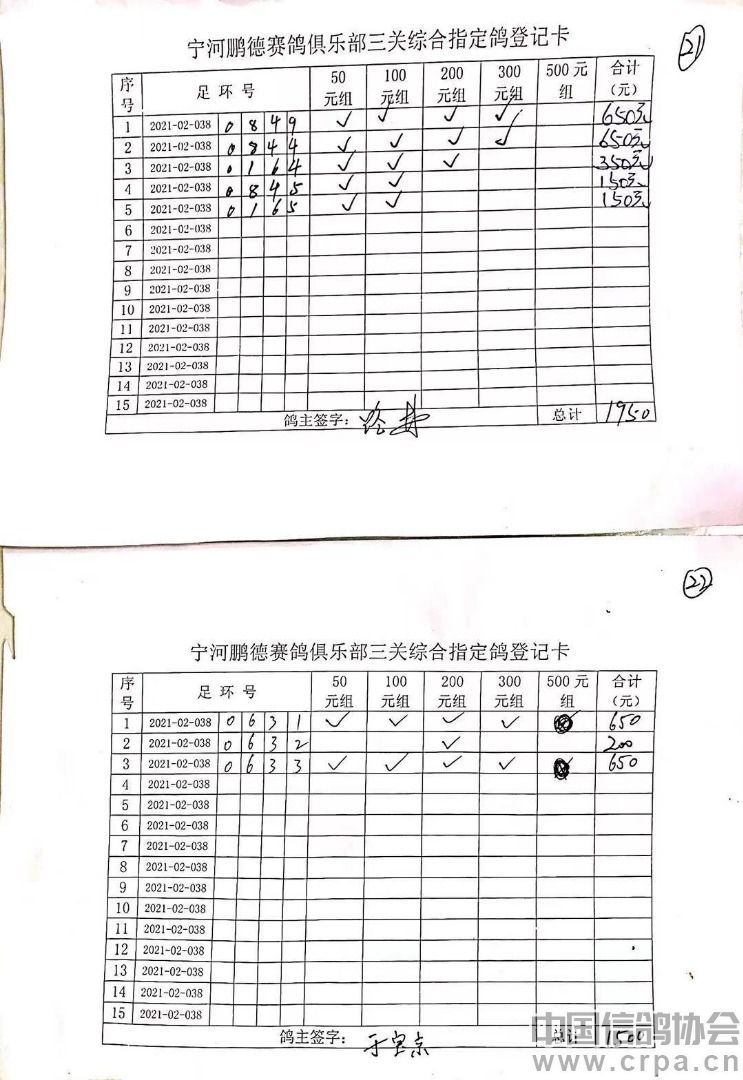 21
宁河鹏德赛鸽俱乐部三关综合指定鸽登记卡
序号 足环号 50元组 100元组 200元组 300元组 500元组 合计（元）
1 2021-02-038 0849 ✓ ✓ ✓ ✓ 650元
2 2021-02-038 0844 ✓ ✓ ✓ ✓ 650元
3 2021-02-038 0164 ✓ ✓ ✓ 350元
4 2021-02-038 0845 ✓ ✓ 150元
5 2021-02-038 0165 ✓ ✓ 150元
6 2021-02-038
7 2021-02-038
8 2021-02-038
9 2021-02-038
10 2021-02-038
11 2021-02-038
12 2021-02-038
13 2021-02-038
14 2021-02-038
15 2021-02-038
鸽主签字： 总计 1950
22
宁河鹏德赛鸽俱乐部三关综合指定鸽登记卡
序号 足环号 50元组 100元组 200元组 300元组 500元组 合计（元）
1 2021-02-038 0631 ✓ ✓ ✓ ✓ 650
2 2021-02-038 0632 ✓ 200
3 2021-02-038 0633 ✓ ✓ ✓ ✓ 650
4 2021-02-038
5 2021-02-038
6 2021-02-038
7 2021-02-038
8 2021-02-038
9 2021-02-038
10 2021-02-038
11 2021-02-038
12 2021-02-038
13 2021-02-038
14 2021-02-038
15 2021-02-038
鸽主签字： 总计 1500
中国信鸽协会
www.crpa.cn